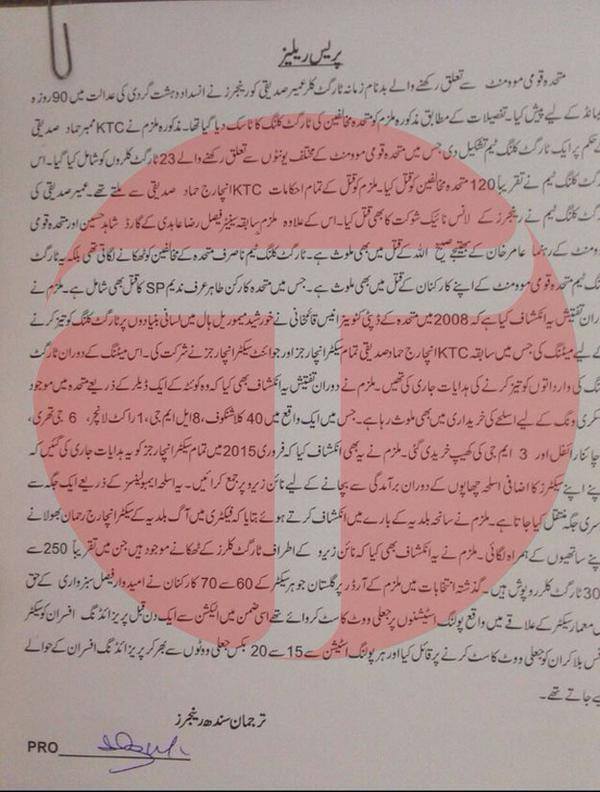 پریس ریلیز
متحدہ قومی موومنٹ سے تعلق رکھنے والے بدنام زمانہ ٹارگٹ کلر عمیر صدیقی کو رینجرز نے انسداد دہشت گردی کی عدالت میں 90 روزہ
یمانڈ کے لیے پیش کیا۔ تفصیلات کے مطابق مذکورہ ملزم کو متحدہ مخالفین کی ٹارگٹ کلنگ کا ٹاسک دیا گیا تھا۔ مذکورہ ملزم نے KTC ممبر حماد صدیقی
کے حکم پر ایک ٹارگٹ کلنگ ٹیم تشکیل دی جس میں متحدہ قومی موومنٹ کے مختلف یونٹوں سے تعلق رکھنے والے 23 ٹارگٹ کلروں کو شامل کیا گیا۔ اس
رگٹ کلنگ ٹیم نے تقریباً 120 متحدہ مخالفین کو قتل کیا۔ ملزم کو قتل کے تمام احکامات KTC انچارج حماد صدیقی سے ملتے تھے۔ عمیر صدیقی کی
رگٹ کلنگ ٹیم نے رینجرز کے لانس نائیک شوکت کا بھی قتل کیا۔ اس کے علاوہ ملزم سابقہ سینیٹر فیصل رضا عابدی کے گارڈ شاہد حسین اور متحدہ قومی
وومنٹ کے رہنما عامر خان کے بھتیجے صبیح اللہ کے قتل میں بھی ملوث ہے۔ ٹارگٹ کلنگ ٹیم ناصرف متحدہ کے مخالفین کو ٹھکانے لگاتی تھی بلکہ یہ ٹارگٹ
نگ ٹیم متحدہ قومی موومنٹ کے اپنے کارکنان کے قتل میں بھی ملوث ہے۔ جس میں متحدہ کارکن طاہر عرف ندیم SP کا قتل بھی شامل ہے۔ ملزم نے
ران تفتیش یہ انکشاف کیا ہے کہ 2008 میں متحدہ کے ڈپٹی کنوینر انیس قائمخانی نے خورشید میموریل ہال میں لسانی بنیادوں پر ٹارگٹ کلنگ کو تیز کرنے
کے لیے میٹنگ کی جس میں سابقہ KTC انچارج حماد صدیقی تمام سیکٹر انچارجز اور جوائنٹ سیکٹر انچارجز نے شرکت کی۔ اس میٹنگ کے دوران ٹارگٹ
نگ کی وارداتوں کو تیز کرنے کی ہدایات جاری کی تھیں۔ ملزم نے دوران تفتیش یہ انکشاف بھی کیا کہ وہ کوئٹہ کے ایک ڈیلر کے ذریعے متحدہ میں موجود
سکری ونگ کے لیے اسلحے کی خریداری میں بھی ملوث رہا ہے۔ جس میں ایک واقع میں 40 کلاشنکوف، 8 ایل ایم جی، 1 راکٹ لانچر، 6 جی تھری،
چائنا رائفل اور 3 ایم جی کی کھیپ خریدی گئی۔ ملزم نے یہ بھی انکشاف کیا کہ فروری 2015 میں تمام سیکٹر انچارجز کو یہ ہدایات جاری کی گئیں کہ
پنے اپنے سیکٹرز کا اضافی اسلحہ چھاپوں کے دوران برآمدگی سے بچانے کے لیے نائن زیرو پر جمع کرائیں۔ یہ اسلحہ ایمبولینسز کے ذریعے ایک جگہ سے
سری جگہ منتقل کیا جاتا ہے۔ ملزم نے سانحہ بلدیہ کے بارے میں انکشاف کرتے ہوئے بتایا کہ فیکٹری میں آگ بلدیہ کے سیکٹر انچارج رحمان بھولا نے
پنے ساتھیوں کے ہمراہ لگائی۔ ملزم نے یہ انکشاف بھی کیا کہ نائن زیرو کے اطراف ٹارگٹ کلرز کے ٹھکانے موجود ہیں جن میں تقریباً 250 سے
30 ٹارگٹ کلر روپوش ہیں۔ گذشتہ انتخابات میں ملزم کے آرڈر پر گلستان جوہر سیکٹر کے 60 سے 70 کارکنان نے امیدوار فیصل سبزواری کے حق
ں معمار سیکٹر کے علاقے میں واقع پولنگ اسٹیشنوں پر جعلی ووٹ کاسٹ کروائے تھے اسی ضمن میں الیکشن سے ایک دن قبل پریزائڈنگ افسران کو سیکٹر
فس بلا کر ان کو جعلی ووٹ کاسٹ کرنے پر قائل کیا اور ہر پولنگ اسٹیشن سے 15 سے 20 بکس جعلی ووٹوں سے بھر کر پریزائڈنگ افسران کے حوالے
یے جاتے تھے۔
ترجمان سندھ رینجرز
PRO